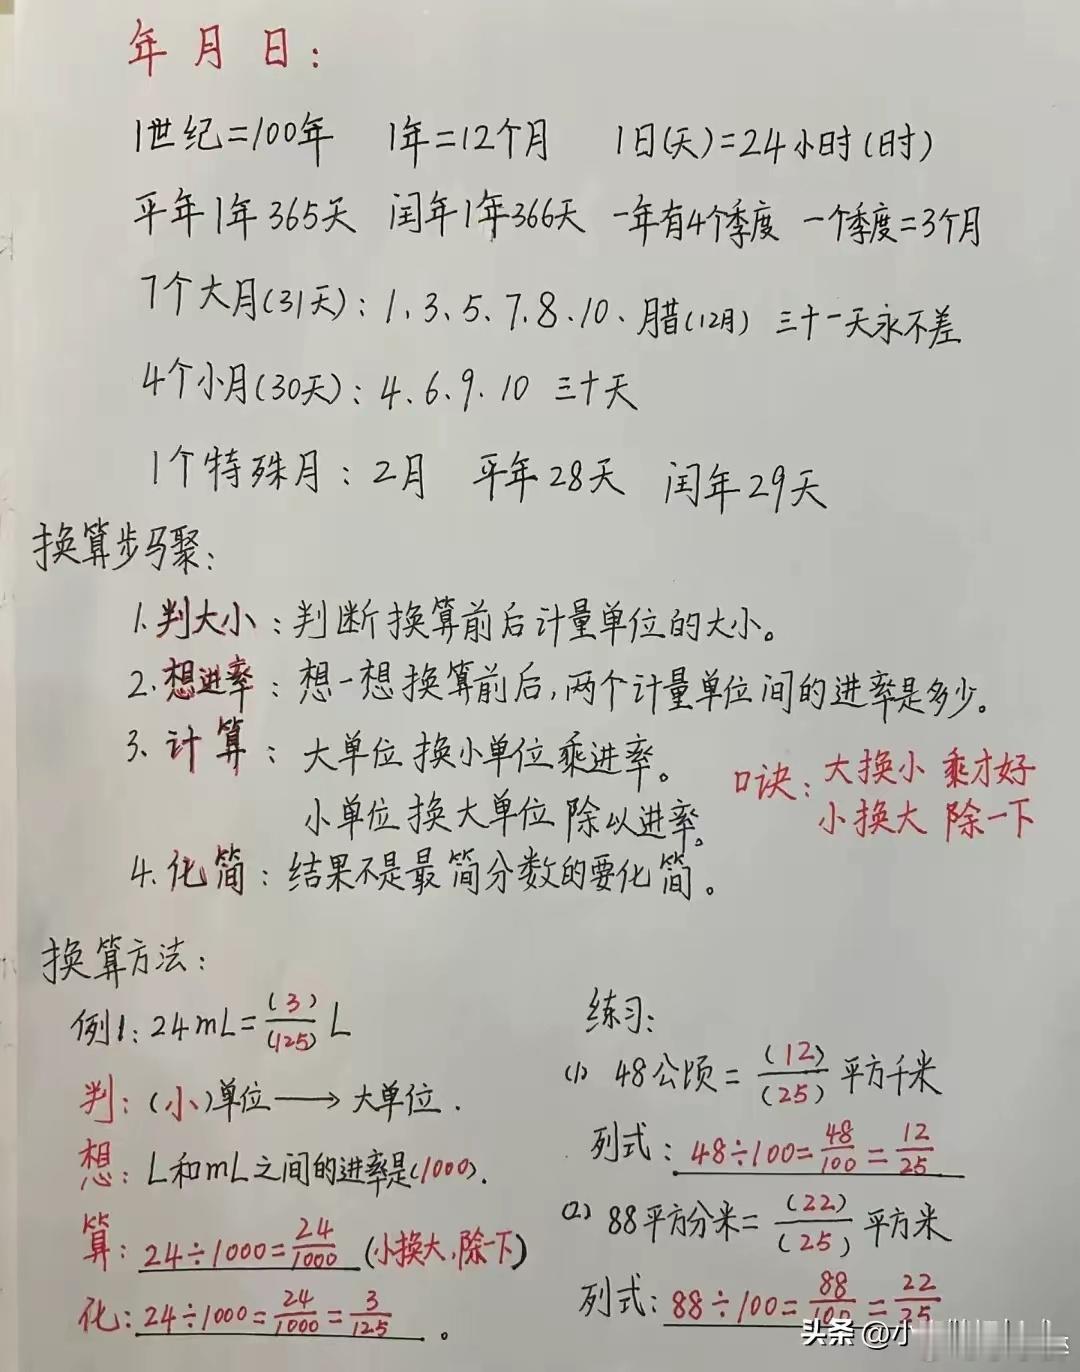 年月日:
1世纪=100年 1年=12个月 1日(天)=24小时(时)
平年1年365天 闰年1年366天 一年有4个季度 一个季度=3个月
7个大月(31天):1、3、5、7、8、10、腊(12月) 三十一天永不差
4个小月(30天):4.6.9.10 三十天
1个特殊月:2月 平年28天 闰年29天
换算步骤:
1.判大小:判断换算前后计量单位的大小。
2.想进率:想一想换算前后,两个计量单位间的进率是多少。
3.计算:大单位换小单位乘进率。
小单位换大单位除以进率。
口诀:大换小 乘才好
小换大 除一下
4.化简:结果不是最简分数的要化简。
换算方法:
例1:24mL=(3)/(125) L
判:(小)单位→大单位.
想:L和mL之间的进率是(1000).
算:24÷1000=24/1000 (小换大,除一下)
化:24÷1000=24/1000=3/125。
练习:
(1) 48公顷=(12)/(25)平方千米
列式:48÷100=48/100=12/25
(2) 88平方分米=(22)/(25)平方米
列式:88÷100=88/100=22/25
头条@小